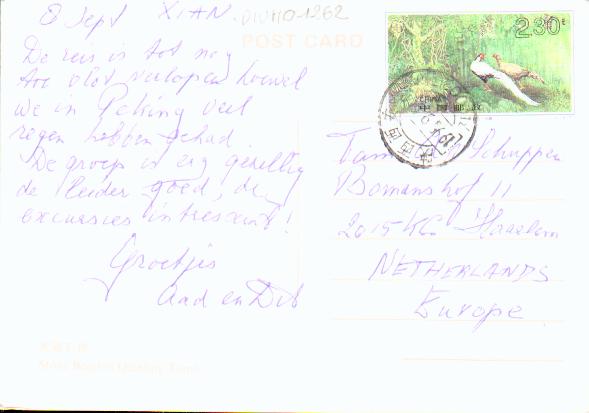 8 Sept XIAN
POST CARD
De reis is tot nog
toe vlot verlopen hoewel
we in Peking veel
regen hebben gehad.
De groep is erg gezellig
de leider goed, de
excursies intressant!
Groetjes
Aad en
2.30
Fam Schuppen
Bomanshof 11
2015 KG Haarlem
NETHERLANDS
Europe